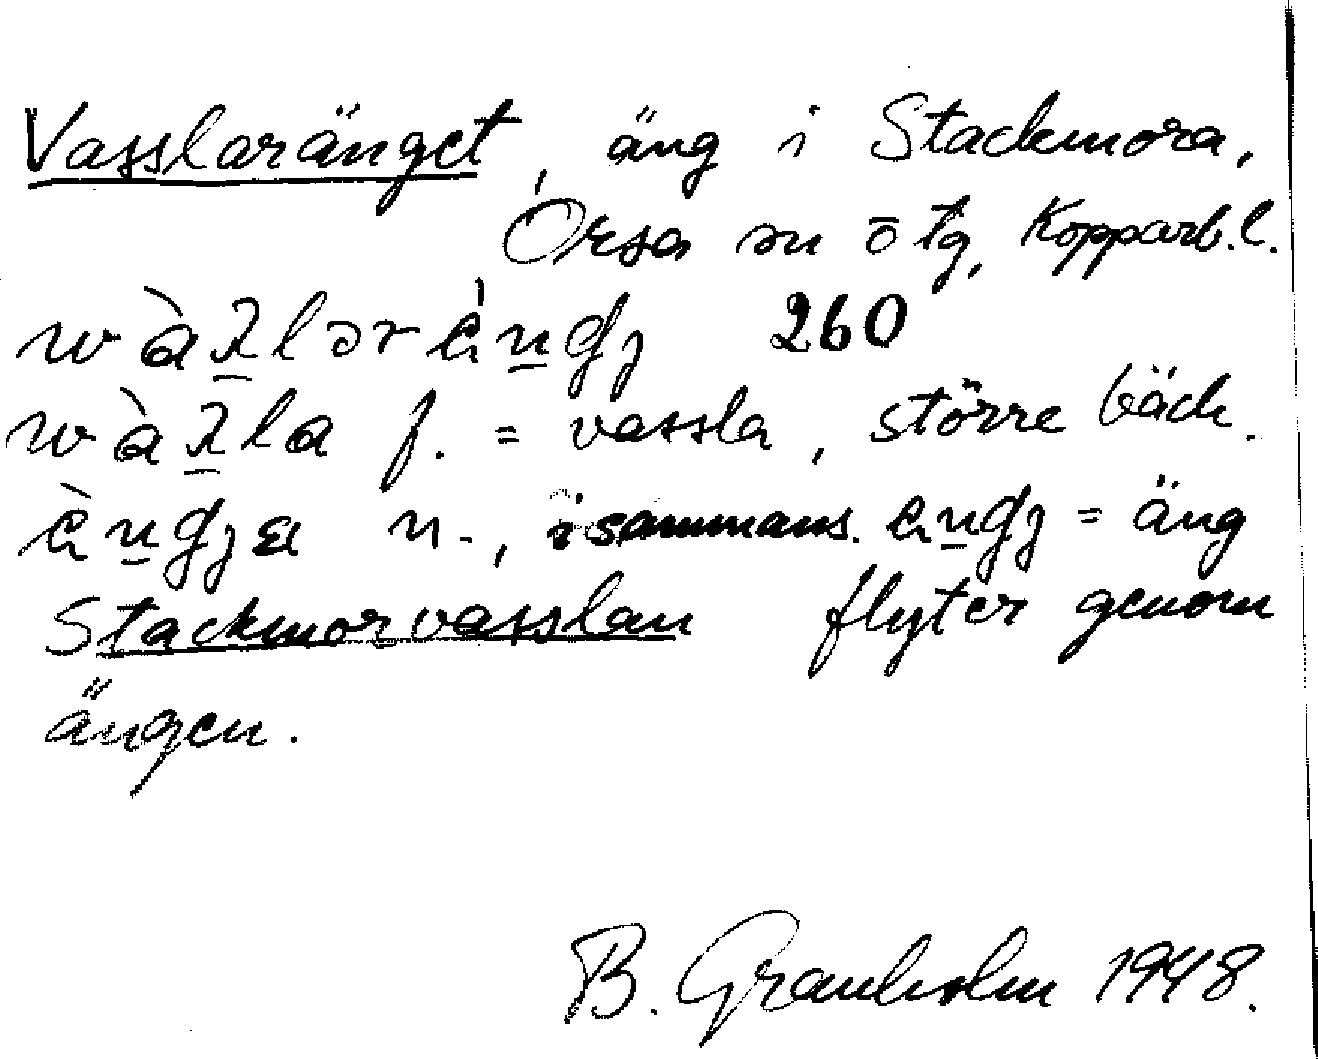 Vasslaränget, äng i Stackmora,
Orsa sn o tg, Kopparb.l.
wàλlərèngj 260
wàλla f. = vassla, större bäck.
èngja n., i sammans. engj = äng
Stackmorvasslan flyter genom
ängen.
B. Granholm 1948.